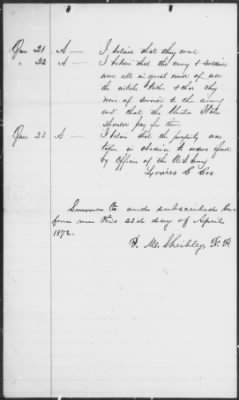 Ques 21 - A - I believe that they was
" 22 - A - I believe that the army & soldiers
was all in great need of all
the articles taken & that they
was of service to the army
and that, the United States
should pay for them
Ques 23 - A - I believe that the property was
taken in obedience to orders given
by Officers of the U.S. Army
Louisa C Cox
Sworn to and subscribed be
fore me this 23d day of April
1872.
P. M. Sheibley,